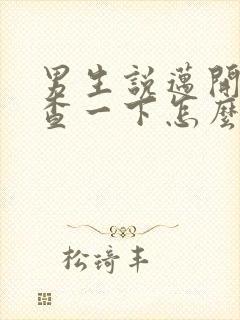 男生說邁開
查一下怎麼
松琦丰